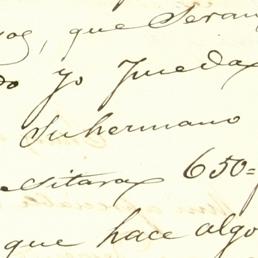 que Seran
do yo pueda
Su hermano
sitara 650=
que hace algo